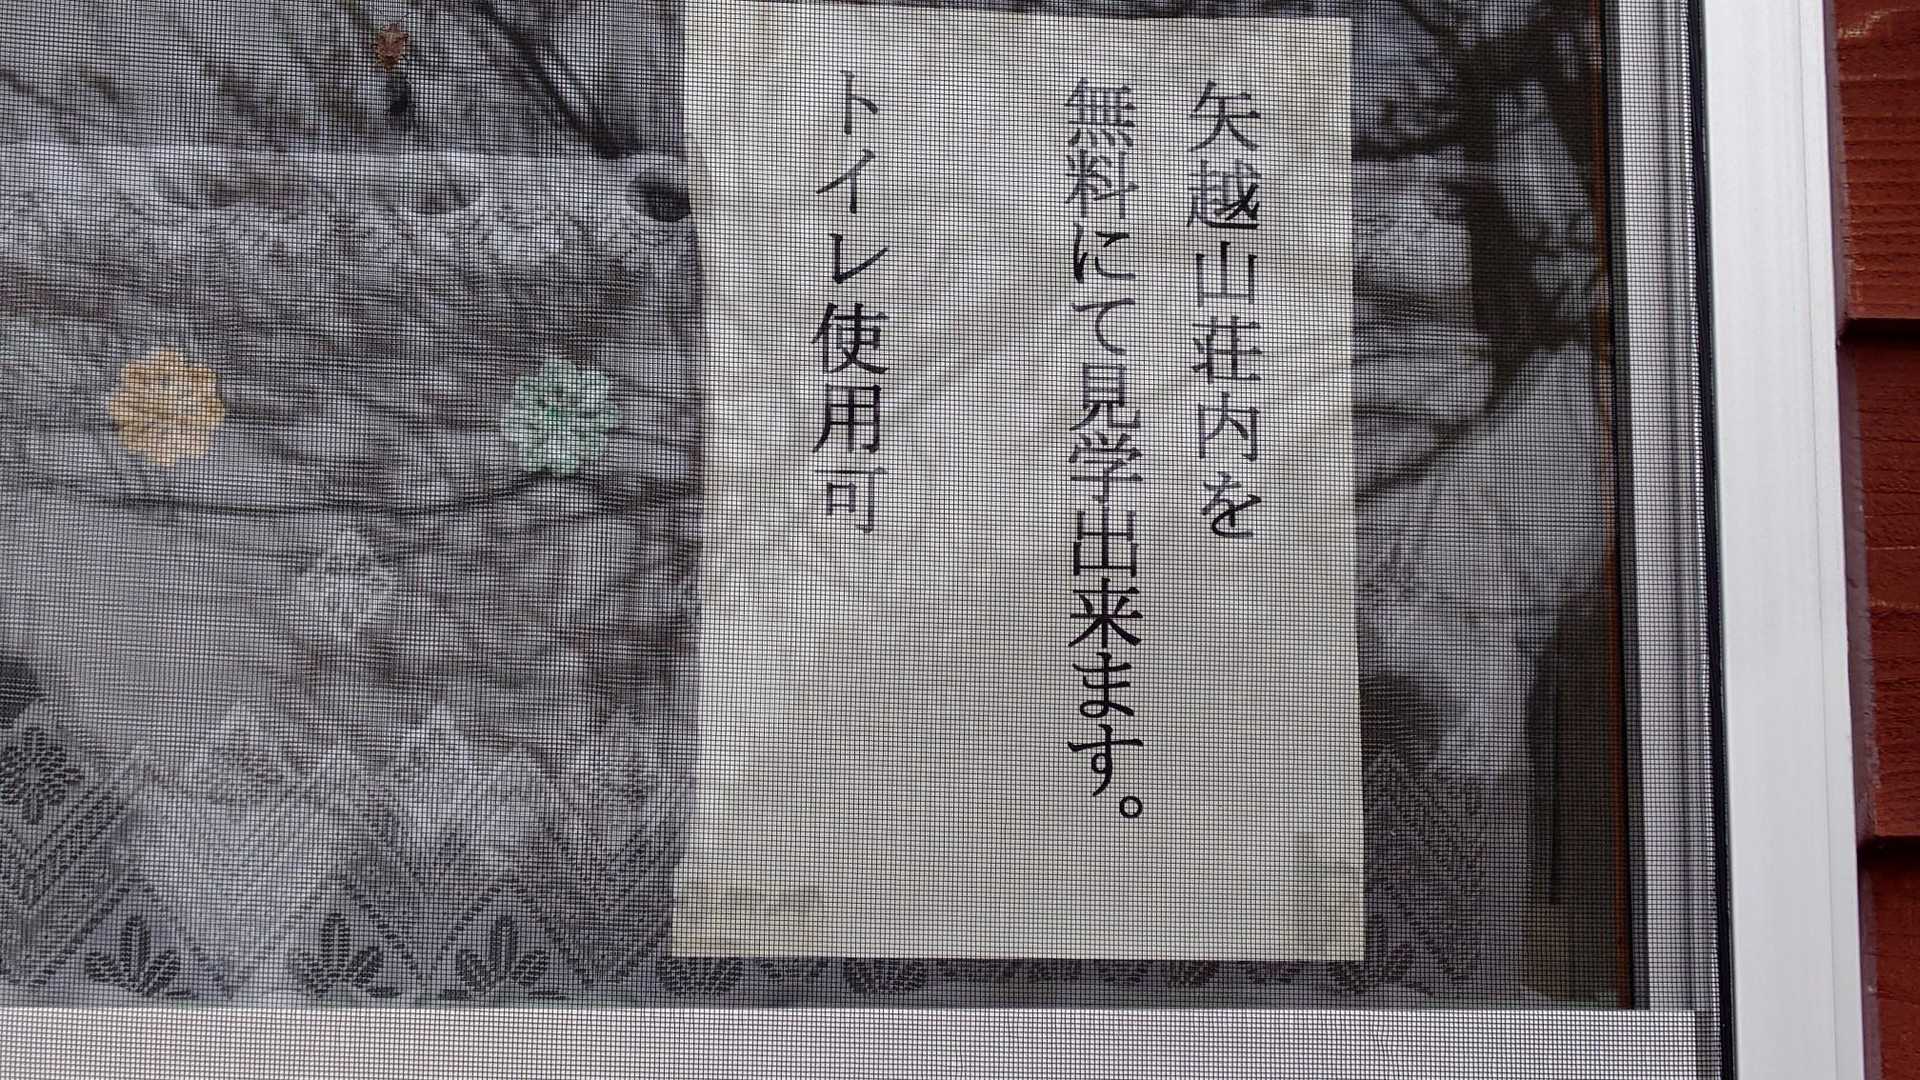 矢越山荘内を
無料にて見学出来ます。
トイレ使用可